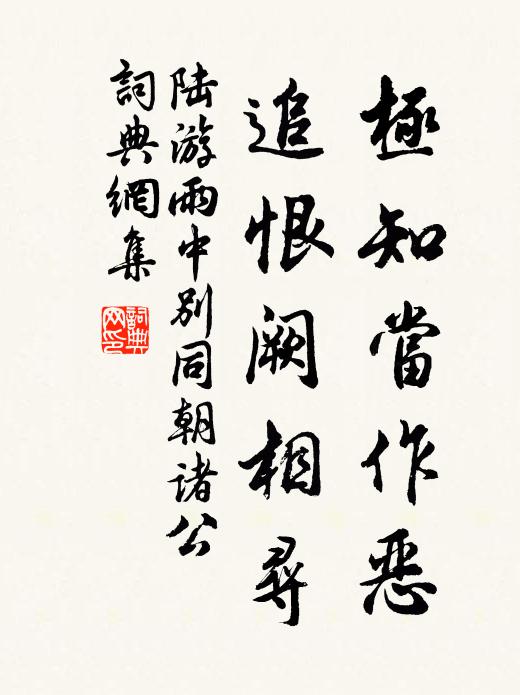 極知當作惡
追恨闕相尋
陆游雨中別同朝诸公
詞典網集
詞典网印